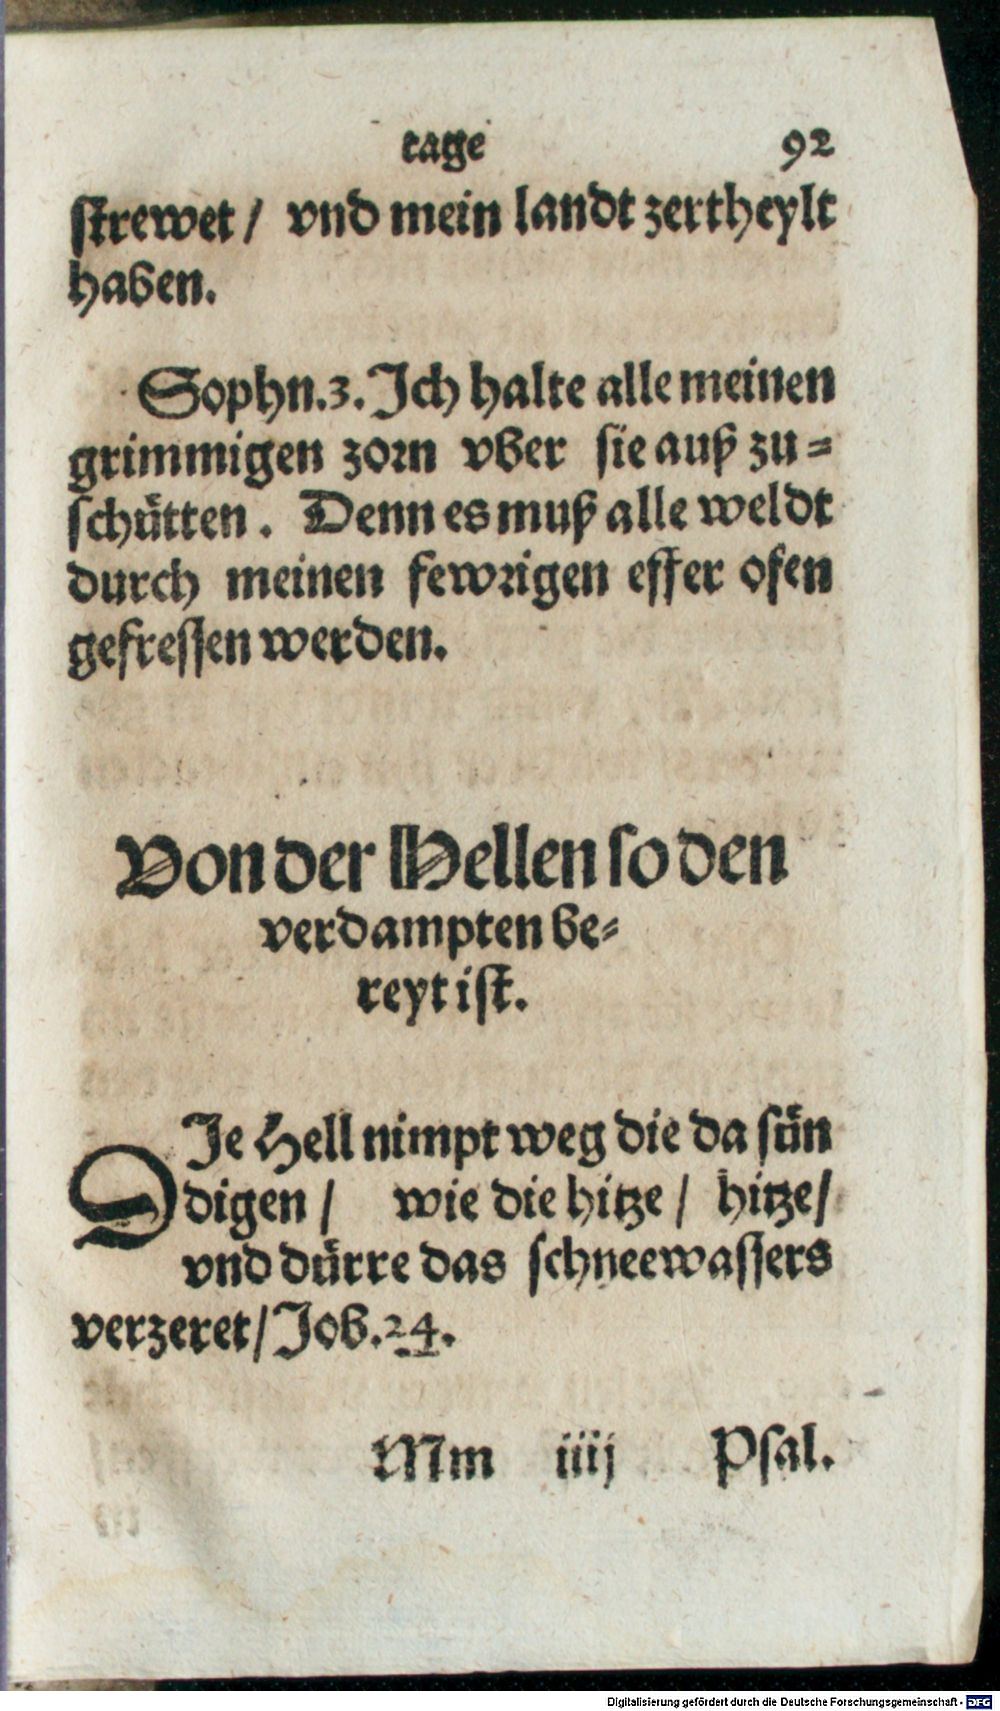 tage 92
ſtrewet / vnd mein landt zertheylt
haben.
Sophn.3. Ich halte alle meinen
grimmigen zorn vber ſie auß zu=
ſchuͤtten. Denn es muß alle weldt
durch meinen fewrigen effer ofen
gefreſſen werden.
Von der Hellen ſo den
verdampten be=
reyt iſt.
DJe Hell nimpt weg die da ſuͤn
digen / wie die hitze / hitze /
vnd duͤrre das ſchneewaſſers
verzeret / Job.24.
Mm iiij Pſal.
Digitalisierung gefördert durch die Deutsche Forschungsgemeinschaft - DFG